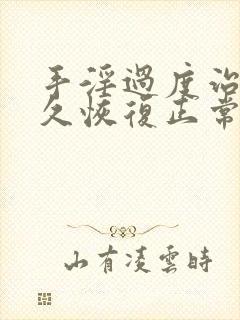 手淫過度治
久恢復正常
山有凌雲時